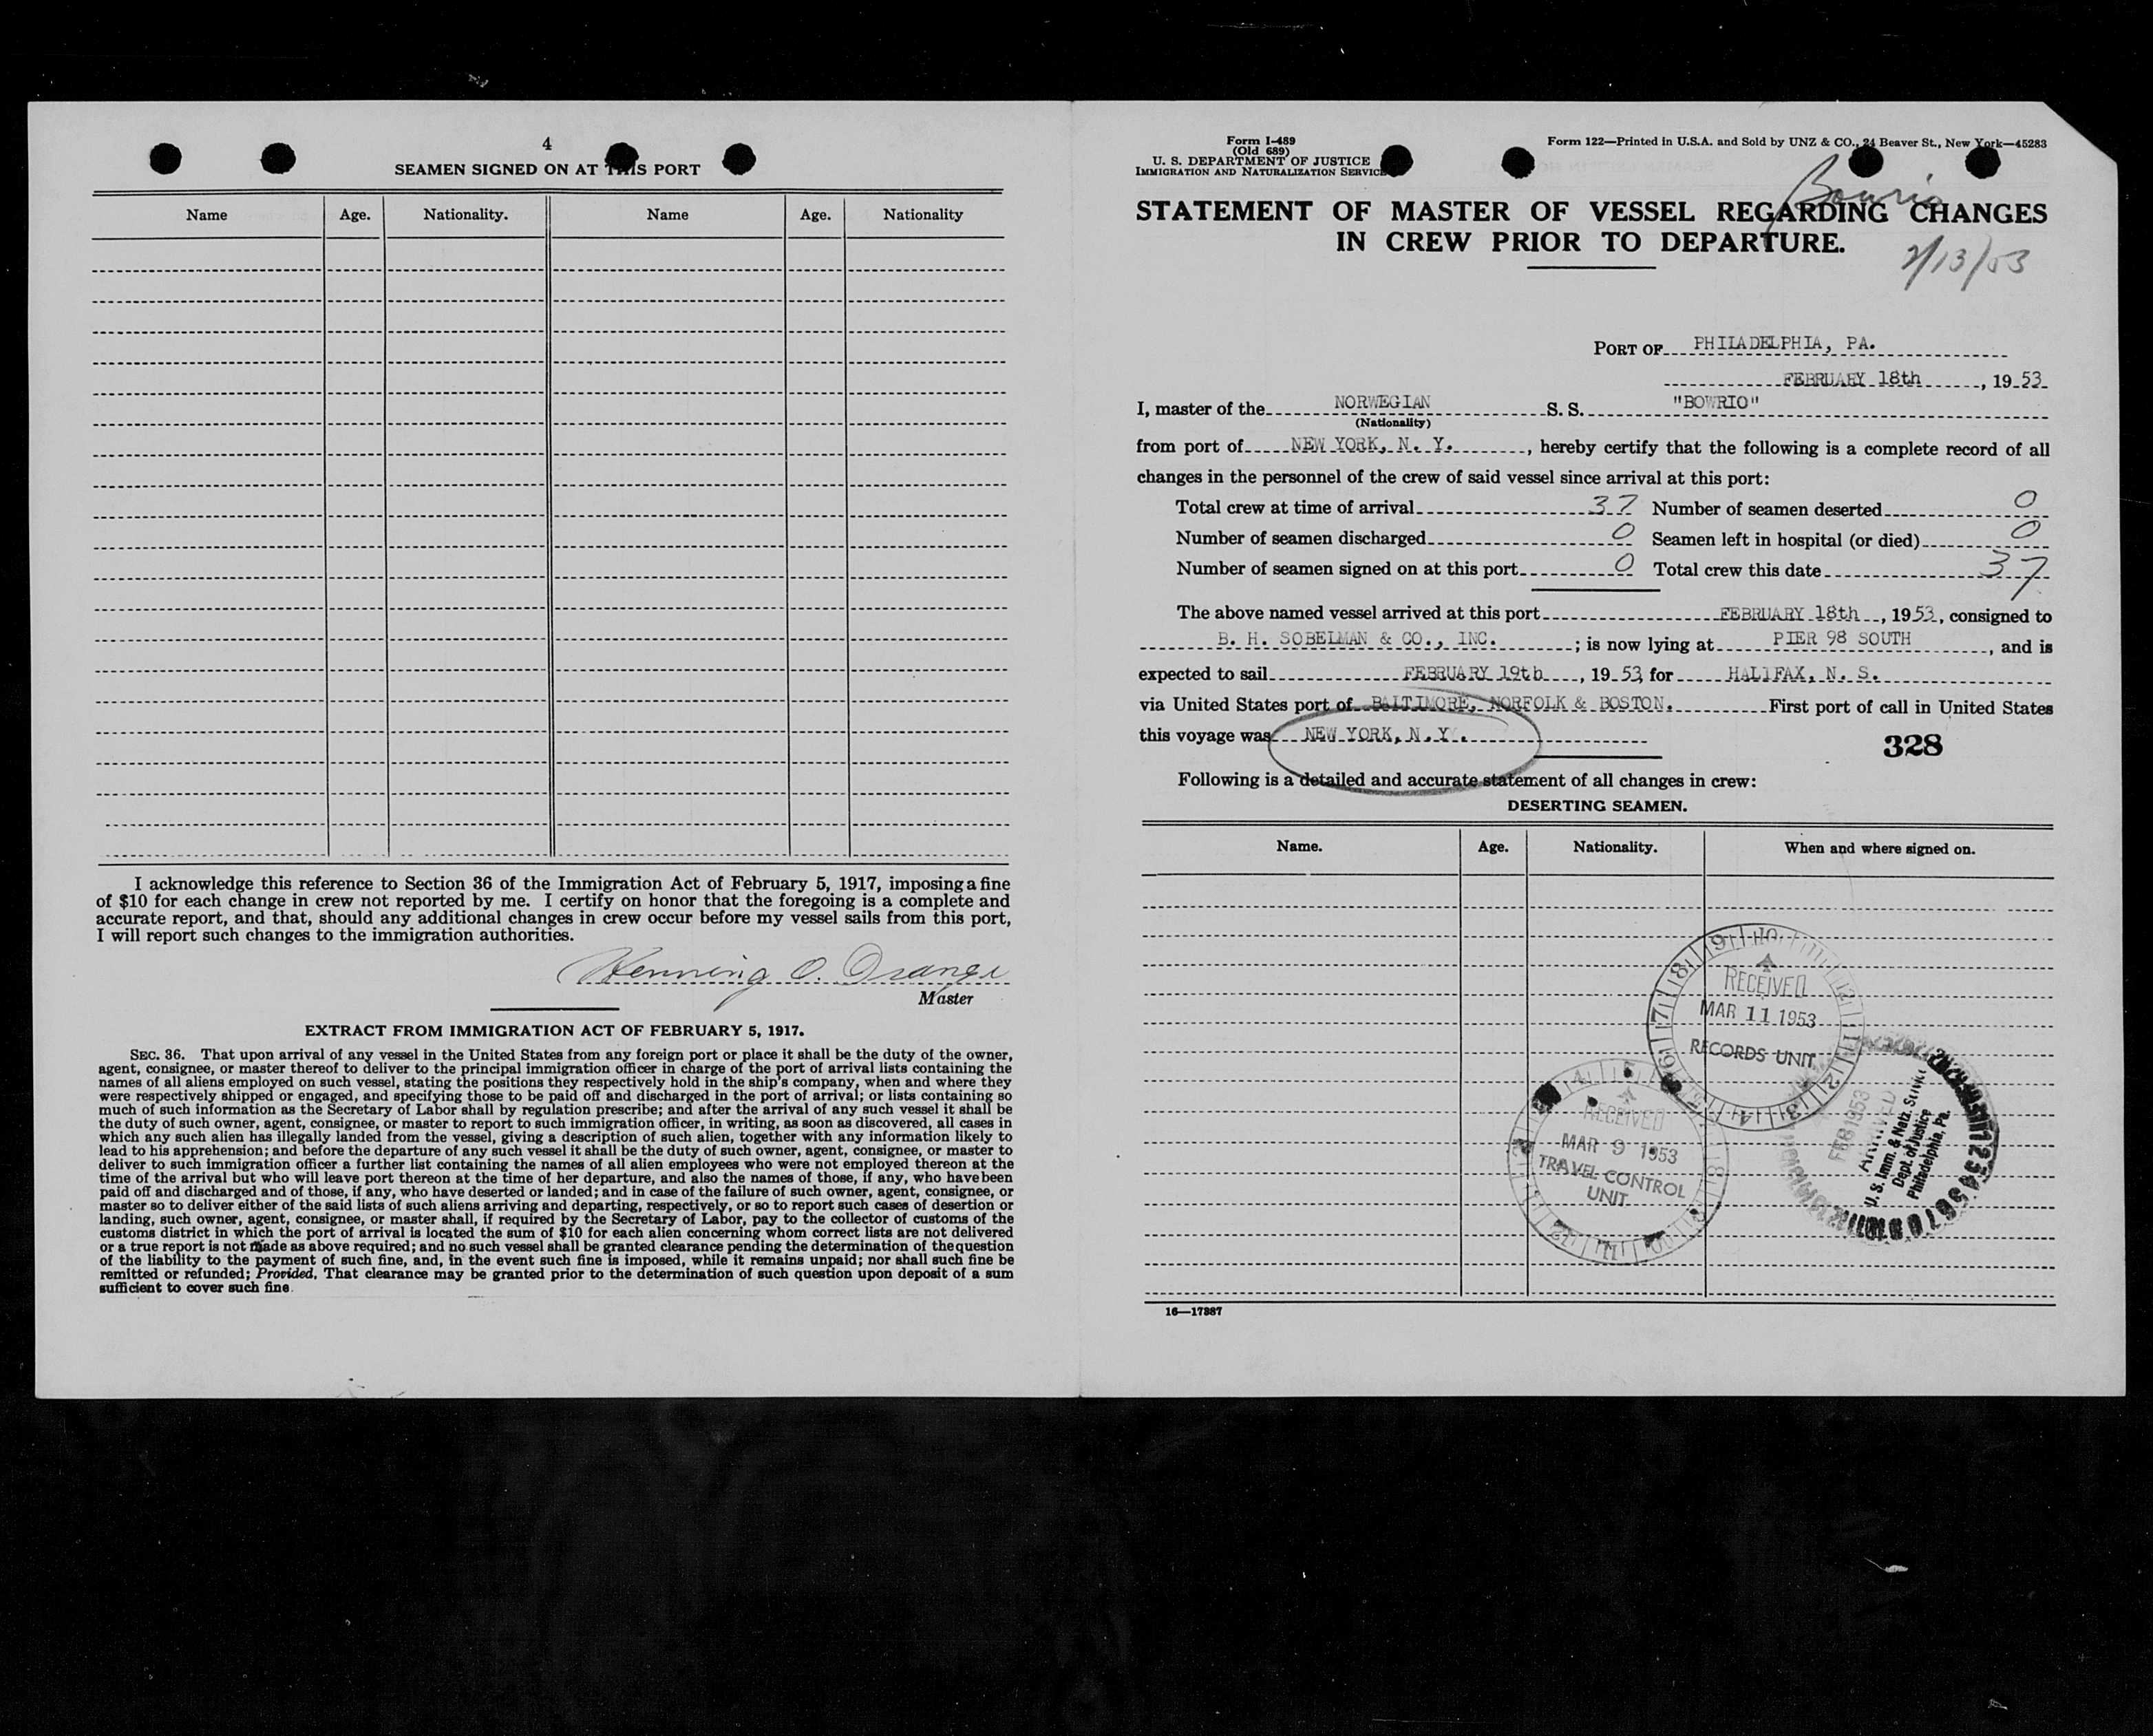 4
SEAMEN SIGNED ON AT THIS PORT
Name Age. Nationality. Name Age. Nationality
I acknowledge this reference to Section 36 of the Immigration Act of February 5, 1917, imposing a fine
of $10 for each change in crew not reported by me. I certify on honor that the foregoing is a complete and
accurate report, and that, should any additional changes in crew occur before my vessel sails from this port,
I will report such changes to the immigration authorities.
Henning O. Orange
Master
EXTRACT FROM IMMIGRATION ACT OF FEBRUARY 5, 1917.
SEC. 36. That upon arrival of any vessel in the United States from any foreign port or place it shall be the duty of the owner,
agent, consignee, or master thereof to deliver to the principal immigration officer in charge of the port of arrival lists containing the
names of all aliens employed on such vessel, stating the positions they respectively hold in the ship's company, when and where they
were respectively shipped or engaged, and specifying those to be paid off and discharged in the port of arrival; or lists containing so
much of such information as the Secretary of Labor shall by regulation prescribe; and after the arrival of any such vessel it shall be
the duty of such owner, agent, consignee, or master to report to such immigration officer, in writing, as soon as discovered, all cases in
which any such alien has illegally landed from the vessel, giving a description of such alien, together with any information likely to
lead to his apprehension; and before the departure of any such vessel it shall be the duty of such owner, agent, consignee, or master to
deliver to such immigration officer a further list containing the names of all alien employees who were not employed thereon at the
time of the arrival but who will leave port thereon at the time of her departure, and also the names of those, if any, who have been
paid off and discharged and of those, if any, who have deserted or landed; and in case of the failure of such owner, agent, consignee, or
master so to deliver either of the said lists of such aliens arriving and departing, respectively, or so to report such cases of desertion or
landing, such owner, agent, consignee, or master shall, if required by the Secretary of Labor, pay to the collector of customs of the
customs district in which the port of arrival is located the sum of $10 for each alien concerning whom correct lists are not delivered
or a true report is not made as above required; and no such vessel shall be granted clearance pending the determination of the question
of the liability to the payment of such fine, and, in the event such fine is imposed, while it remains unpaid; nor shall such fine be
remitted or refunded; Provided, That clearance may be granted prior to the determination of such question upon deposit of a sum
sufficient to cover such fine.
Form I-489
(Old 689)
U. S. DEPARTMENT OF JUSTICE
IMMIGRATION AND NATURALIZATION SERVICE
Form 122—Printed in U.S.A. and Sold by UNZ & CO., 24 Beaver St., New York—45283
Bowrio
STATEMENT OF MASTER OF VESSEL REGARDING CHANGES
IN CREW PRIOR TO DEPARTURE.
2/13/53
PORT OF PHILADELPHIA, PA.
FEBRUARY 18th, 1953
I, master of the NORWEGIAN S. S. "BOWRIO"
(Nationality)
from port of NEW YORK, N. Y., hereby certify that the following is a complete record of all
changes in the personnel of the crew of said vessel since arrival at this port:
Total crew at time of arrival 37 Number of seamen deserted 0
Number of seamen discharged 0 Seamen left in hospital (or died) 0
Number of seamen signed on at this port 0 Total crew this date 37
The above named vessel arrived at this port FEBRUARY 18th, 1953, consigned to
B. H. SOBELMAN & CO., INC.; is now lying at PIER 98 SOUTH, and is
expected to sail FEBRUARY 19th, 1953 for HALIFAX, N. S.
via United States port of BALTIMORE, NORFOLK & BOSTON. First port of call in United States
this voyage was NEW YORK, N.Y.
328
Following is a detailed and accurate statement of all changes in crew:
DESERTING SEAMEN.
Name. Age. Nationality. When and where signed on.
RECEIVED
MAR 11 1953
RECORDS UNIT
RECEIVED
MAR 9 1953
TRAVEL CONTROL
UNIT
FEB 1953
ARRIVED
U. S. Imm. & Natz. Service
Dept. of Justice
Philadelphia, Pa.
16—17887